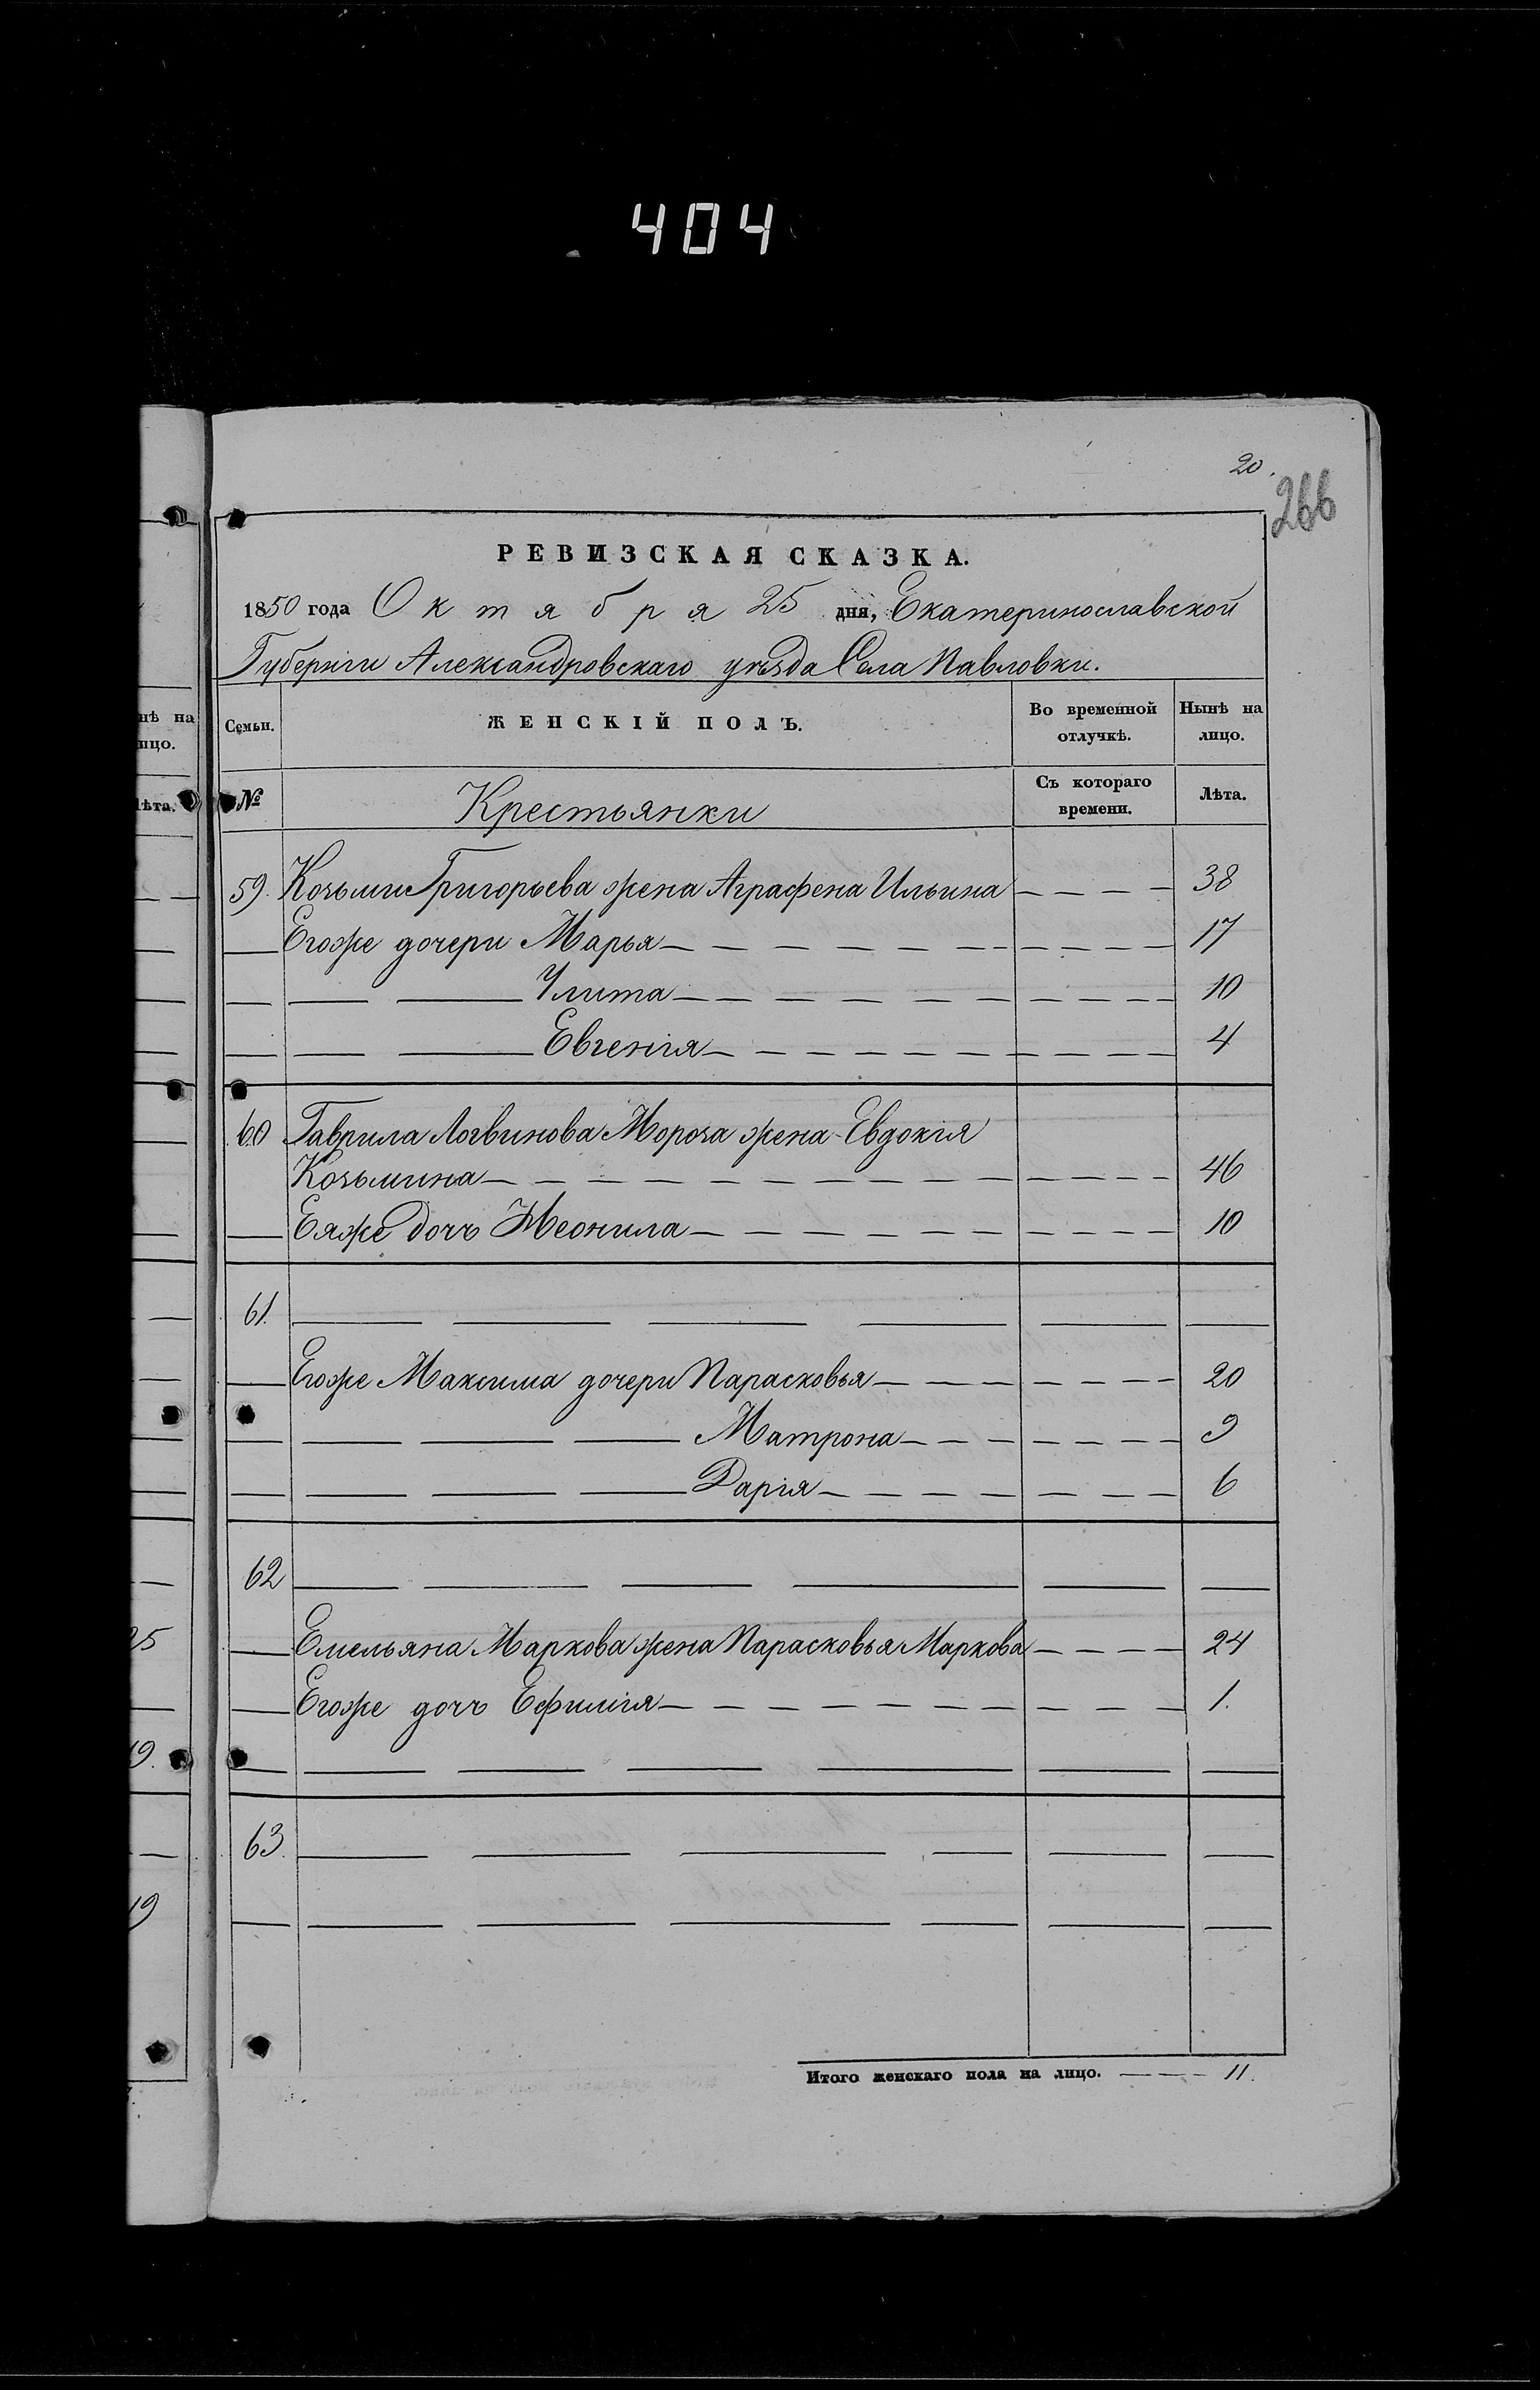 404
20.
266
РЕВИЗСКАЯ СКАЗКА.
1850 года Октября 25 дня, Екатеринославской
Губерніи Александровскаго уѣзда Села Павловки.
Семьи. ЖЕНСКІЙ ПОЛЪ. Во временной отлучкѣ. Нынѣ на лицо.
№ Крестьянки Съ котораго времени. Лѣта.
59. Козьмы Григорьева жена Аграфена Ильина 38
Егоже дочери Марья 17
Улита 10
Евгенія 4
60 Гаврила Логвинова Мороза жена Евдокія
Козьмина 46
Еяже дочь Неонила 10
61.
Егоже Максима дочери Парасковья 20
Матрона 9
Дарія 6
62
Емельяна Маркова жена Парасковья Маркова 24
Егоже дочь Ефимія 1.
63.
Итого женскаго пола на лицо. 11.
нѣ на
ицо.
лѣта.
25
19.
19